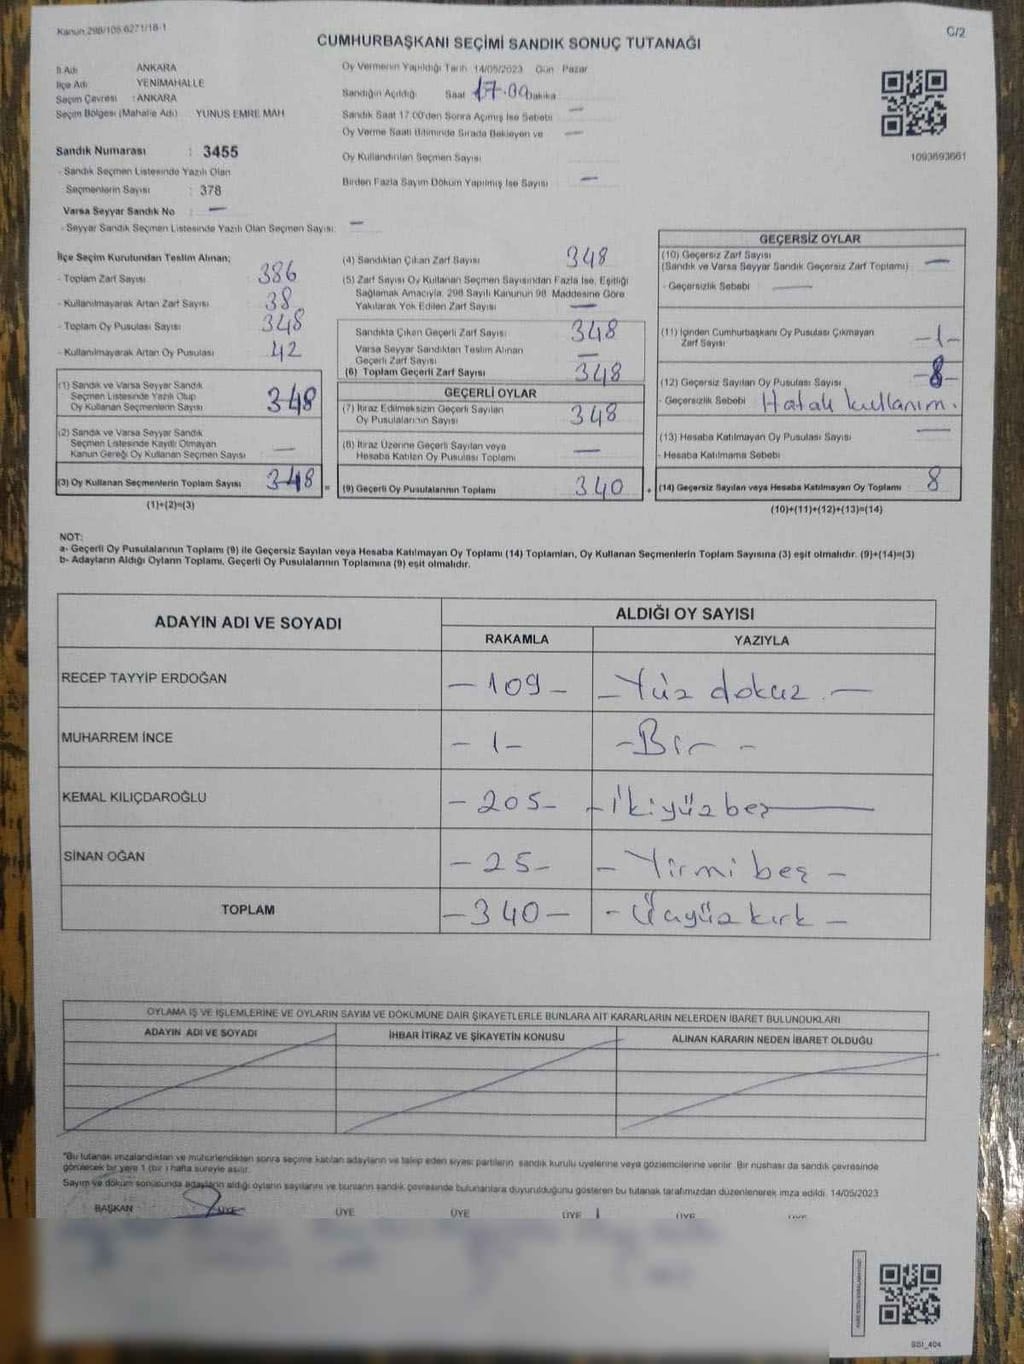 Kanun 298/105 6271/18-1
C/2
CUMHURBAŞKANI SEÇİMİ SANDIK SONUÇ TUTANAĞI
İl Adı ANKARA
İlçe Adı YENİMAHALLE
Seçim Çevresi : ANKARA
Seçim Bölgesi (Mahalle Adı) YUNUS EMRE MAH
Oy Vermenin Yapıldığı Tarih 14/05/2023 Gün Pazar
Sandığın Açıldığı Saat 17.00 Dakika
Sandık Saat 17 00'den Sonra Açmış İse Sebebi —
Oy Verme Saati Bitiminde Sırada Bekleyen ve —
Oy Kullandırılan Seçmen Sayısı
Birden Fazla Sayım Döküm Yapılmış İse Sayısı —
1093693661
Sandık Numarası : 3455
- Sandık Seçmen Listesinde Yazılı Olan
Seçmenlerin Sayısı : 378
Varsa Seyyar Sandık No —
- Seyyar Sandık Seçmen Listesinde Yazılı Olan Seçmen Sayısı: —
İlçe Seçim Kurulundan Teslim Alınan;
- Toplam Zarf Sayısı 386
- Kullanılmayarak Artan Zarf Sayısı 38
- Toplam Oy Pusulası Sayısı 348
- Kullanılmayarak Artan Oy Pusulası 42
(1) Sandık ve Varsa Seyyar Sandık
Seçmen Listesinde Yazılı Olup
Oy Kullanan Seçmenlerin Sayısı 348
(2) Sandık ve Varsa Seyyar Sandık
Seçmen Listesinde Kayıtlı Olmayan
Kanun Gereği Oy Kullanan Seçmen Sayısı —
(3) Oy Kullanan Seçmenlerin Toplam Sayısı 348 =
(1)+(2)=(3)
(4) Sandıktan Çıkan Zarf Sayısı 348
(5) Zarf Sayısı Oy Kullanan Seçmen Sayısından Fazla İse, Eşitliği
Sağlamak Amacıyla, 298 Sayılı Kanunun 98. Maddesine Göre
Yakılarak Yok Edilen Zarf Sayısı —
Sandıkta Çıkan Geçerli Zarf Sayısı 348
Varsa Seyyar Sandıktan Teslim Alınan
Geçerli Zarf Sayısı —
(6) Toplam Geçerli Zarf Sayısı 348
GEÇERLİ OYLAR
(7) İtiraz Edilmeksizin Geçerli Sayılan
Oy Pusulalarının Sayısı 348
(8) İtiraz Üzerine Geçerli Sayılan veya
Hesaba Katılan Oy Pusulası Toplamı —
(9) Geçerli Oy Pusulalarının Toplamı 340 +
GEÇERSİZ OYLAR
(10) Geçersiz Zarf Sayısı
(Sandık ve Varsa Seyyar Sandık Geçersiz Zarf Toplamı) —
- Geçersizlik Sebebi —
(11) İçinden Cumhurbaşkanı Oy Pusulası Çıkmayan
Zarf Sayısı -1-
(12) Geçersiz Sayılan Oy Pusulası Sayısı -8-
- Geçersizlik Sebebi Hatalı kullanım.
(13) Hesaba Katılmayan Oy Pusulası Sayısı —
- Hesaba Katılmama Sebebi
(14) Geçersiz Sayılan veya Hesaba Katılmayan Oy Toplamı 8
(10)+(11)+(12)+(13)=(14)
NOT:
a- Geçerli Oy Pusulalarının Toplamı (9) ile Geçersiz Sayılan veya Hesaba Katılmayan Oy Toplamı (14) Toplamları, Oy Kullanan Seçmenlerin Toplam Sayısına (3) eşit olmalıdır. (9)+(14)=(3)
b- Adayların Aldığı Oyların Toplamı, Geçerli Oy Pusulalarının Toplamına (9) eşit olmalıdır.
ADAYIN ADI VE SOYADI
ALDIĞI OY SAYISI
RAKAMLA YAZIYLA
RECEP TAYYİP ERDOĞAN —109— —Yüz dokuz.—
MUHARREM İNCE —1— —Bir—
KEMAL KILIÇDAROĞLU —205— —İkiyüzbeş—
SİNAN OĞAN —25— —Yirmi beş—
TOPLAM —340— —Üçyüzkırk—
OYLAMA İŞ VE İŞLEMLERİNE VE OYLARIN SAYIM VE DÖKÜMÜNE DAİR ŞİKAYETLERLE BUNLARA AİT KARARLARIN NELERDEN İBARET BULUNDUKLARI
ADAYIN ADI VE SOYADI İHBAR İTİRAZ VE ŞİKAYETİN KONUSU ALINAN KARARIN NEDEN İBARET OLDUĞU
"Bu tutanak imzalandıktan ve mühürlendikten sonra seçime katılan adayların ve talep eden siyasi partilerin sandık kurulu üyelerine veya gözlemcilerine verilir. Bir nüshası da sandık çevresinde
görülecek bir yere 1 (bir ) hafta süreyle asılır.
Sayım ve döküm sonucunda adayların aldığı oyların sayılarını ve bunların sandık çevresinde bulunanlara duyurulduğunu gösteren bu tutanak tarafımızdan düzenlenerek imza edildi. 14/05/2023
BAŞKAN ÜYE ÜYE ÜYE ÜYE ÜYE ÜYE
SSI_404